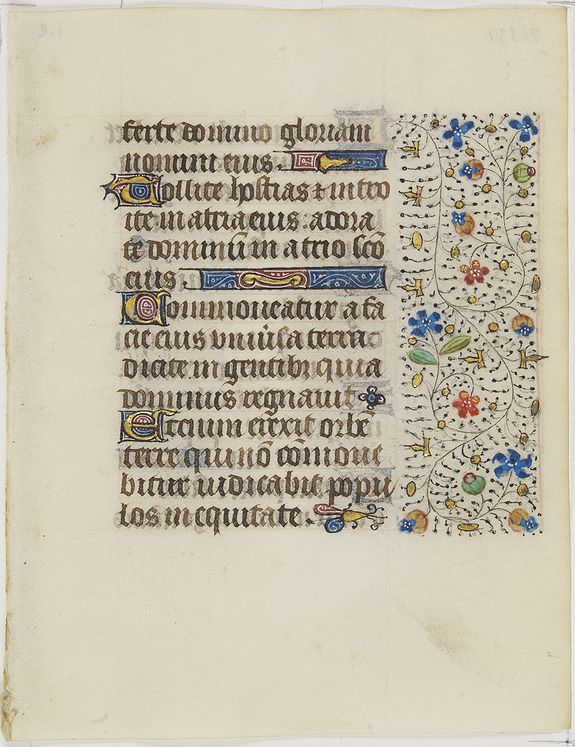 ferte domino gloriam
nomini eius.
Tollite hostias & intro
ite in atria eius: adora
te dominū in atrio scō
eius:
Commoueatur a fa
cie eius vniūsa terra
dicite in gentibꝫ quia
dominus regnauit
Etenim erexit orbē
terre qui nō cōmoue
bitur iudicabit popu
los in equitate.